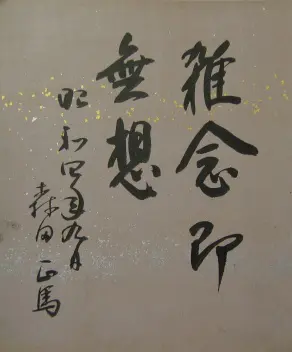 雑念即
無想
昭和四年九月
森田正馬